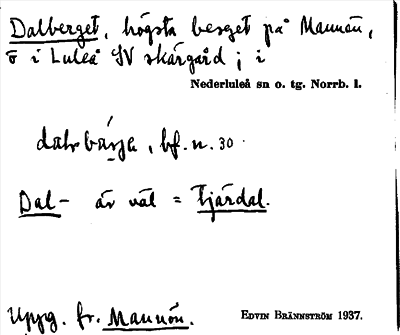 Dalberget, högsta berget på Mannön,
ö i Luleå SV skärgård ; i
Nederluleå sn o. tg. Norrb. l.
bf. n. 30.
Dal- är väl = tjärdal.
Uppg. fr. Mannön.
EDVIN BRÄNNSTRÖM 1937.